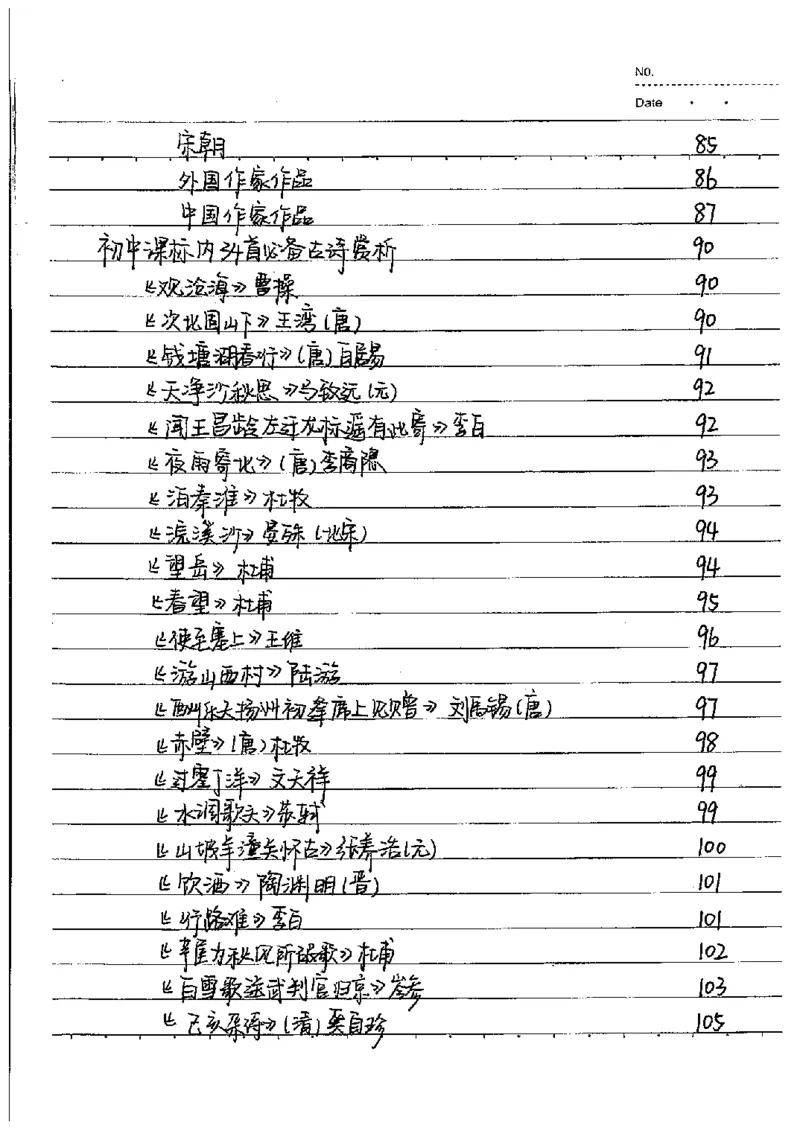 NO.
Date
宋朝 85
外国作家作品 86
中国作家作品 87
初中课标内34首必备古诗赏析 90
《观沧海》曹操 90
《次北固山下》王湾(唐) 90
《钱塘湖春行》(唐)白居易 91
《天净沙秋思》马致远(元) 92
《闻王昌龄左迁龙标遥有此寄》李白 92
《夜雨寄北》(唐)李商隐 93
《泊秦淮》杜牧 93
《浣溪沙》晏殊(北宋) 94
《望岳》杜甫 94
《春望》杜甫 95
《使至塞上》王维 96
《游山西村》陆游 97
《酬乐天扬州初逢席上见赠》刘禹锡(唐) 97
《赤壁》(唐)杜牧 98
《过零丁洋》文天祥 99
《水调歌头》苏轼 99
《山坡羊潼关怀古》张养浩(元) 100
《饮酒》陶渊明(晋) 101
《行路难》李白 101
《茅屋为秋风所破歌》杜甫 102
《白雪歌送武判官归京》岑参 103
《己亥杂诗》(清)龚自珍 105